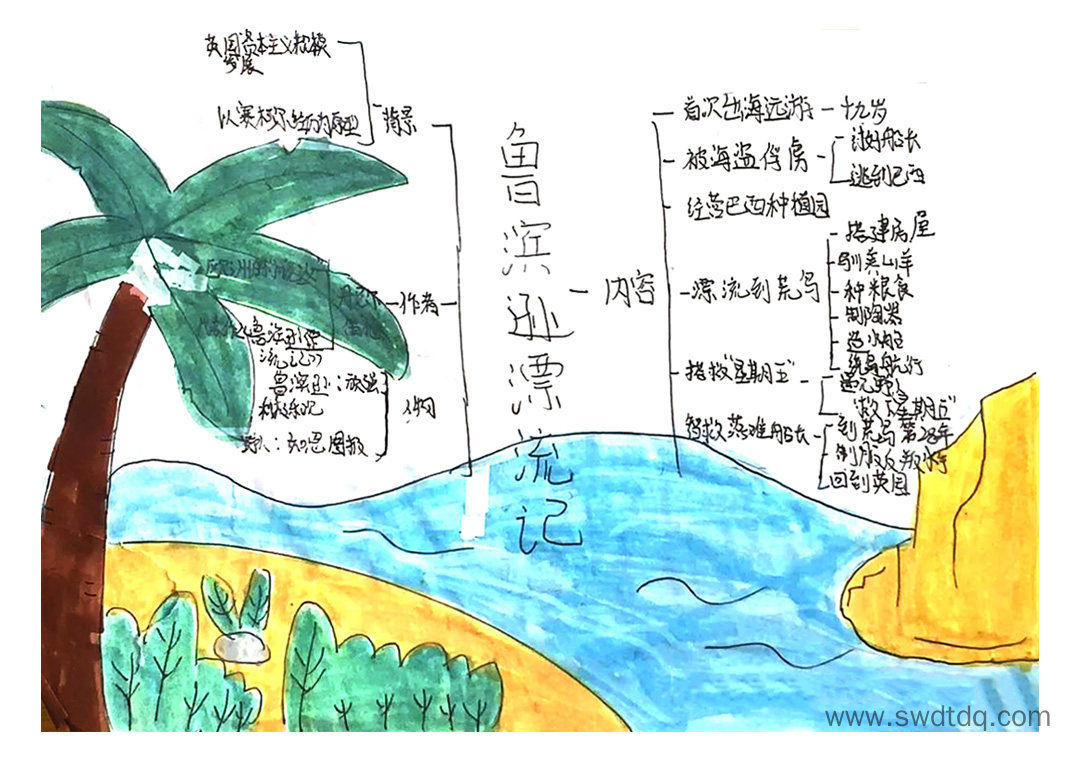 英国资本主义积极
发展
以赛科尔经历为原型
背景
欧洲的小说之父
丹尼尔
笛福
作者
代表作《鲁滨逊漂
流记》
鲁滨逊：顽强
积极乐观
野人：知恩图报
人物
鲁滨逊漂流记
内容
首次出海远游
十九岁
被海盗俘虏
讨好船长
逃到巴西
经营巴西种植园
漂流到荒岛
搭建房屋
驯养山羊
种粮食
制陶器
造小船
搭救"星期五"
救下"星期五"
搭救落难船长
到荒岛第28年
制服反叛水手
回到英国
www.swdtdq.com